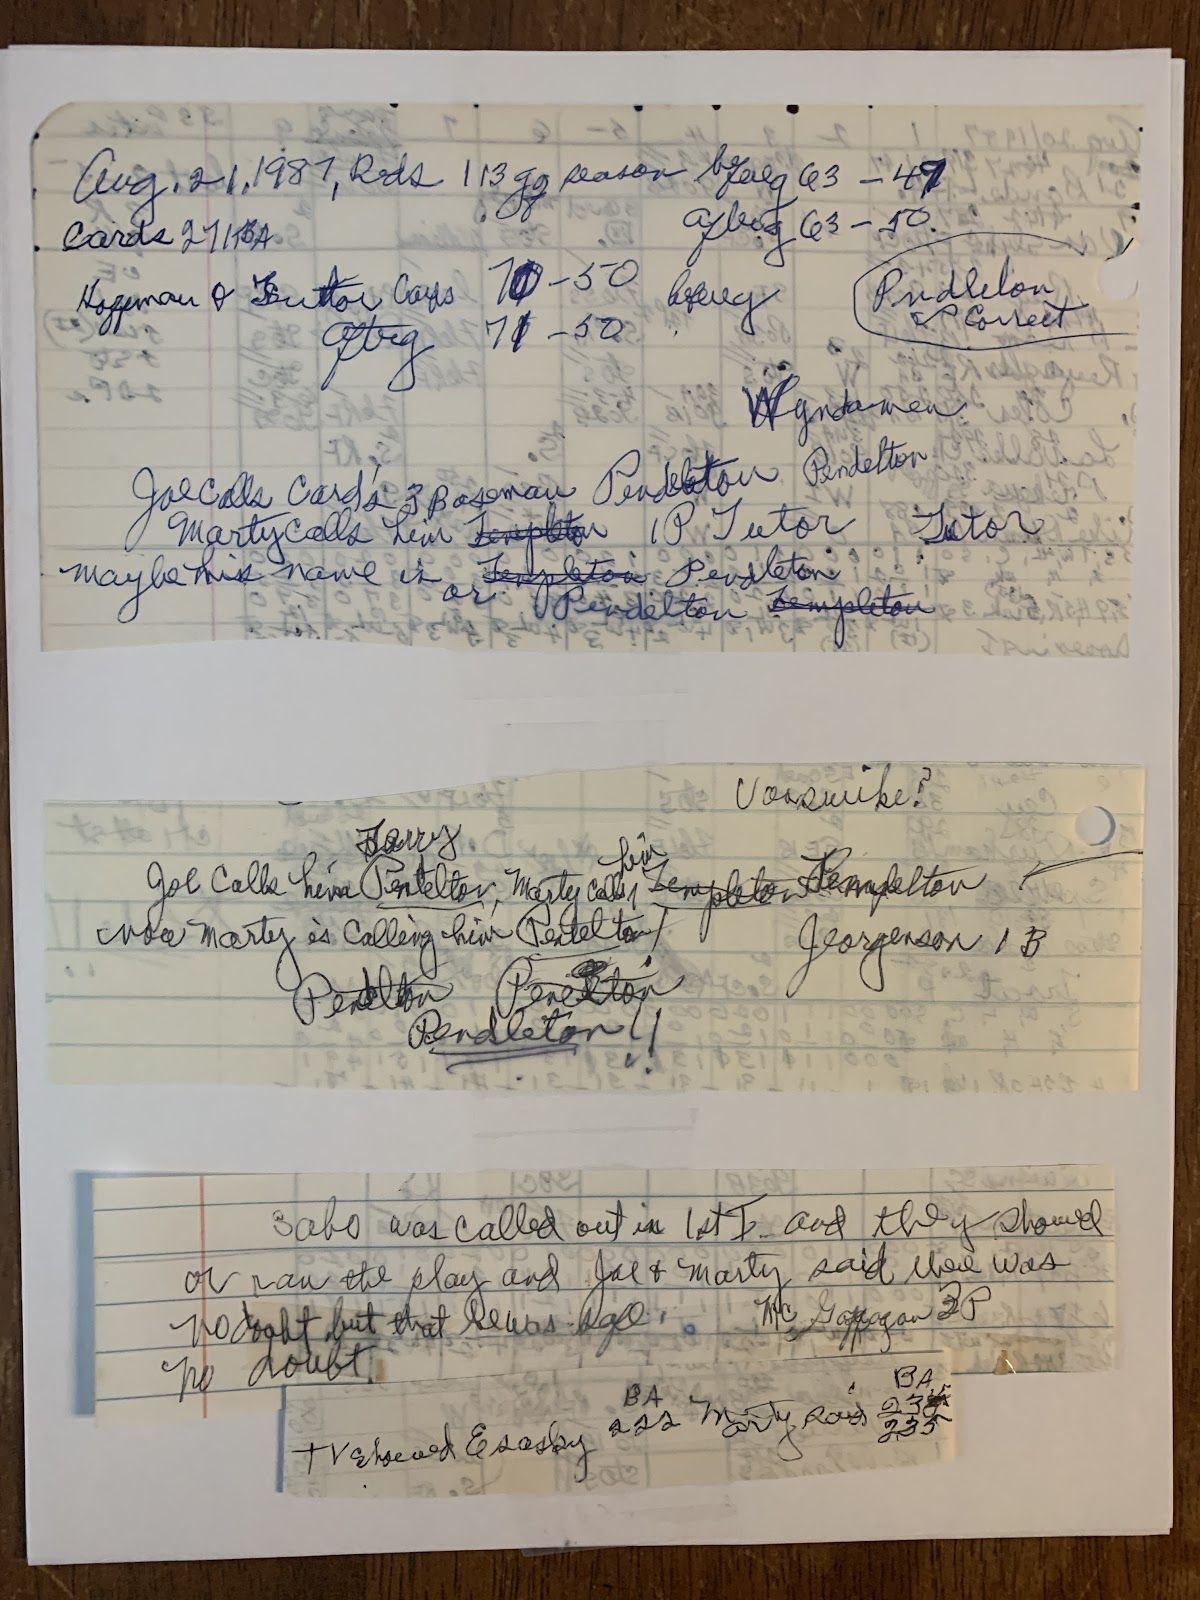 Aug. 21, 1987, Reds 113 gg season before g 63 - 49
Cards 271 BA after g 63 - 50
Hageman & Tutor Caps 70 - 50 before g
after g 71 - 50
Pndleton is Correct
Wyndamen
Joe Calls Card's 3 Baseman Pendelton Pendelton
Marty Calls him Templeton 1P Tutor Tutor
maybe his name is Templeton Pendleton
or Pendelton Templeton
Voasmike?
Tarry
Joe Calls him Pentelton, Marty Calls him Templeton Templeton
now Marty is Calling him Pentelton! Jeorgenson 1 B
Pendleton Penelton
Pendleton!!
Sabo was called out in 1st I. and they showed
or ran the play and Joe & Marty said there was
no doght but that he was safe. Mc Gaffagan 2P
no doubt.
BA BA
TV showed Esasky 222 Marty said 235
235